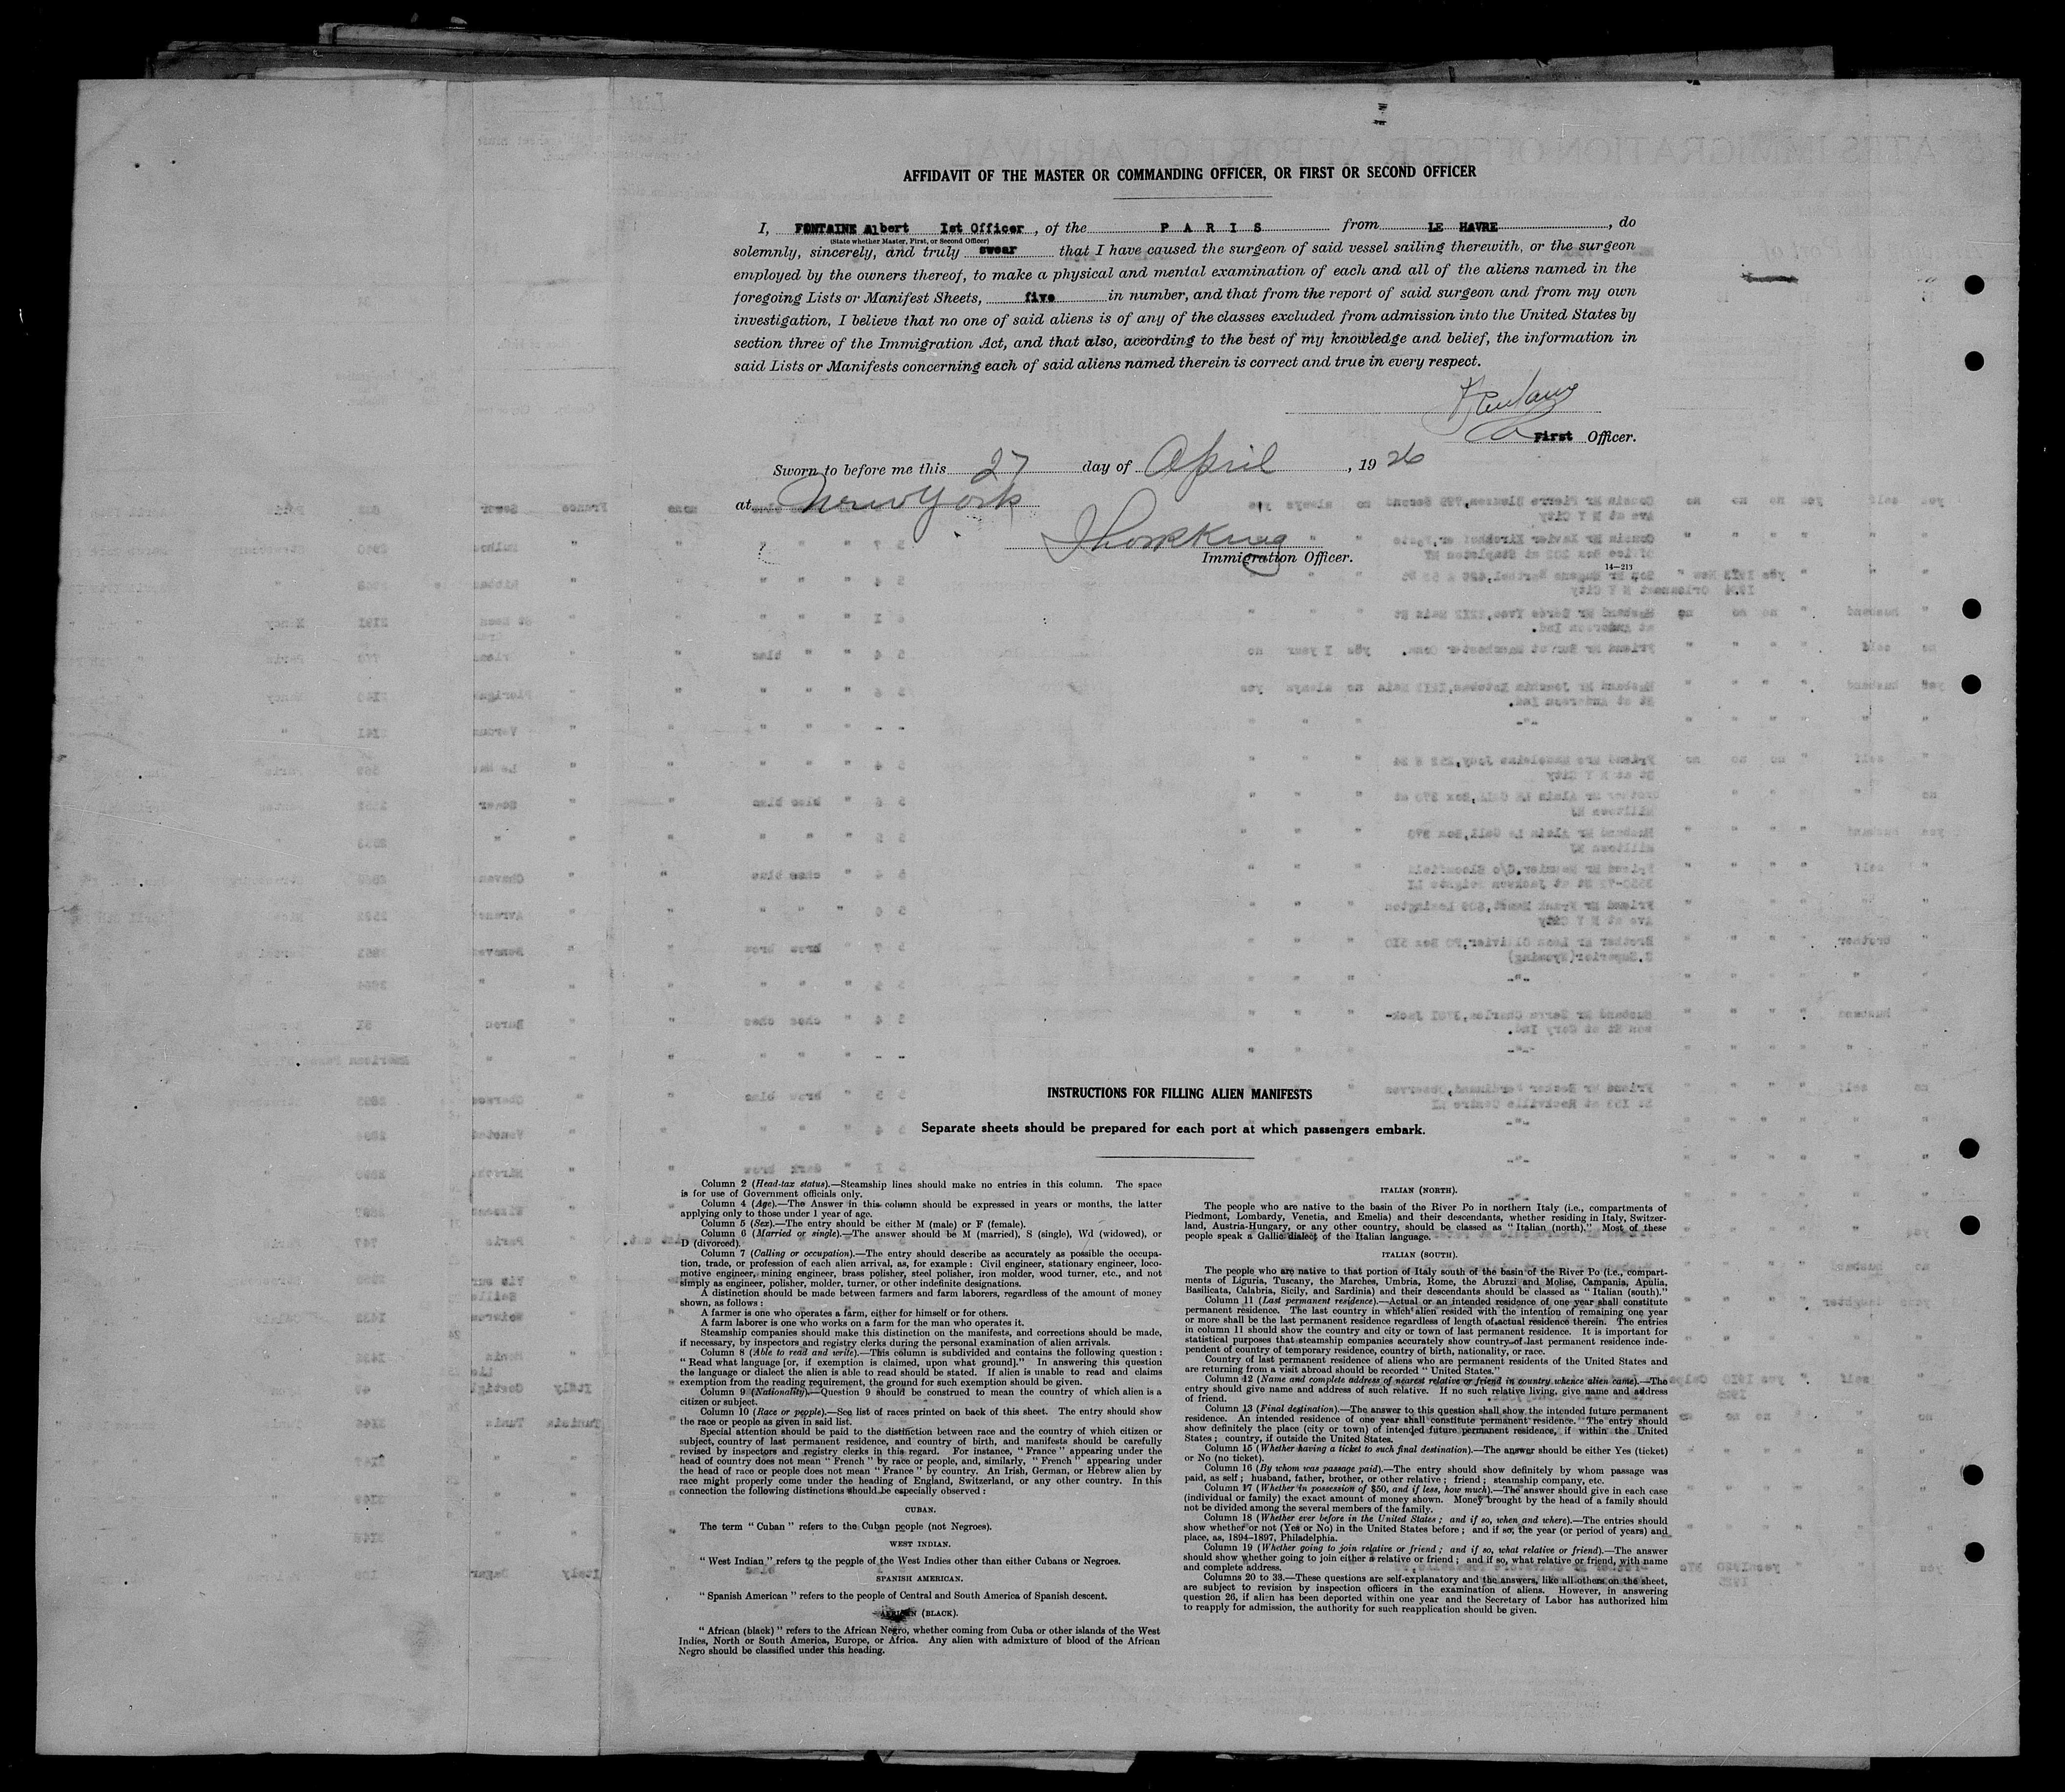 AFFIDAVIT OF THE MASTER OR COMMANDING OFFICER, OR FIRST OR SECOND OFFICER
I, FONTAINE Albert 1st Officer, of the P A R I S from LE HAVRE, do
(State whether Master, First, or Second Officer)
solemnly, sincerely, and truly swear that I have caused the surgeon of said vessel sailing therewith, or the surgeon
employed by the owners thereof, to make a physical and mental examination of each and all of the aliens named in the
foregoing Lists or Manifest Sheets, five in number, and that from the report of said surgeon and from my own
investigation, I believe that no one of said aliens is of any of the classes excluded from admission into the United States by
section three of the Immigration Act, and that also, according to the best of my knowledge and belief, the information in
said Lists or Manifests concerning each of said aliens named therein is correct and true in every respect.
First Officer.
Sworn to before me this 27 day of April, 1926
at New York
Immigration Officer.
14—213
INSTRUCTIONS FOR FILLING ALIEN MANIFESTS
Separate sheets should be prepared for each port at which passengers embark.
Column 2 (Head-tax status).—Steamship lines should make no entries in this column. The space
is for use of Government officials only.
Column 4 (Age).—The Answer in this column should be expressed in years or months, the latter
applying only to those under 1 year of age.
Column 5 (Sex).—The entry should be either M (male) or F (female).
Column 6 (Married or single).—The answer should be M (married), S (single), Wd (widowed), or
D (divorced).
Column 7 (Calling or occupation).—The entry should describe as accurately as possible the occupa-
tion, trade, or profession of each alien arrival, as, for example : Civil engineer, stationary engineer, loco-
motive engineer, mining engineer, brass polisher, steel polisher, iron molder, wood turner, etc., and not
simply as engineer, polisher, molder, turner, or other indefinite designations.
A distinction should be made between farmers and farm laborers, regardless of the amount of money
shown, as follows :
A farmer is one who operates a farm, either for himself or for others.
A farm laborer is one who works on a farm for the man who operates it.
Steamship companies should make this distinction on the manifests, and corrections should be made,
if necessary, by inspectors and registry clerks during the personal examination of alien arrivals.
Column 8 (Able to read and write).—This column is subdivided and contains the following question :
“ Read what language [or, if exemption is claimed, upon what ground].” In answering this question
the language or dialect the alien is able to read should be stated. If alien is unable to read and claims
exemption from the reading requirement, the ground for such exemption should be given.
Column 9 (Nationality).—Question 9 should be construed to mean the country of which alien is a
citizen or subject.
Column 10 (Race or people).—See list of races printed on back of this sheet. The entry should show
the race or people as given in said list.
Special attention should be paid to the distinction between race and the country of which citizen or
subject, country of last permanent residence, and country of birth, and manifests should be carefully
revised by inspectors and registry clerks in this regard. For instance, “ France ” appearing under the
head of country does not mean “ French ” by race or people, and, similarly, “ French ” appearing under
the head of race or people does not mean “ France ” by country. An Irish, German, or Hebrew alien by
race might properly come under the heading of England, Switzerland, or any other country. In this
connection the following distinctions should be especially observed :
CUBAN.
The term “ Cuban ” refers to the Cuban people (not Negroes).
WEST INDIAN.
“ West Indian ” refers to the people of the West Indies other than either Cubans or Negroes.
SPANISH AMERICAN.
“ Spanish American ” refers to the people of Central and South America of Spanish descent.
AFRICAN (BLACK).
“ African (black) ” refers to the African Negro, whether coming from Cuba or other islands of the West
Indies, North or South America, Europe, or Africa. Any alien with admixture of blood of the African
Negro should be classified under this heading.
ITALIAN (NORTH).
The people who are native to the basin of the River Po in northern Italy (i.e., compartments of
Piedmont, Lombardy, Venetia, and Emelia) and their descendants, whether residing in Italy, Switzer-
land, Austria-Hungary, or any other country, should be classed as “ Italian (north).” Most of these
people speak a Gallic dialect of the Italian language.
ITALIAN (SOUTH).
The people who are native to that portion of Italy south of the basin of the River Po (i.e., compart-
ments of Liguria, Tuscany, the Marches, Umbria, Rome, the Abruzzi and Molise, Campania, Apulia,
Basilicata, Calabria, Sicily, and Sardinia) and their descendants should be classed as “ Italian (south).”
Column 11 (Last permanent residence).—Actual or an intended residence of one year shall constitute
permanent residence. The last country in which alien resided with the intention of remaining one year
or more shall be the last permanent residence regardless of length of actual residence therein. The entries
in column 11 should show the country and city or town of last permanent residence. It is important for
statistical purposes that steamship companies accurately show country of last permanent residence inde-
pendent of country of temporary residence, country of birth, nationality, or race.
Country of last permanent residence of aliens who are permanent residents of the United States and
are returning from a visit abroad should be recorded “ United States.”
Column 12 (Name and complete address of nearest relative or friend in country whence alien came).—The
entry should give name and address of such relative. If no such relative living, give name and address
of friend.
Column 13 (Final destination).—The answer to this question shall show the intended future permanent
residence. An intended residence of one year shall constitute permanent residence. The entry should
show definitely the place (city or town) of intended future permanent residence, if within the United
States ; country, if outside the United States.
Column 15 (Whether having a ticket to such final destination).—The answer should be either Yes (ticket)
or No (no ticket).
Column 16 (By whom was passage paid).—The entry should show definitely by whom passage was
paid, as self ; husband, father, brother, or other relative ; friend ; steamship company, etc.
Column 17 (Whether in possession of $50, and if less, how much).—The answer should give in each case
(individual or family) the exact amount of money shown. Money brought by the head of a family should
not be divided among the several members of the family.
Column 18 (Whether ever before in the United States ; and if so, when and where).—The entries should
show whether or not (Yes or No) in the United States before ; and if so, the year (or period of years) and
place, as, 1894–1897, Philadelphia.
Column 19 (Whether going to join relative or friend ; and if so, what relative or friend).—The answer
should show whether going to join either a relative or friend ; and if so, what relative or friend, with name
and complete address.
Columns 20 to 33.—These questions are self-explanatory and the answers, like all others on the sheet,
are subject to revision by inspection officers in the examination of aliens. However, in answering
question 26, if alien has been deported within one year and the Secretary of Labor has authorized him
to reapply for admission, the authority for such reapplication should be given.